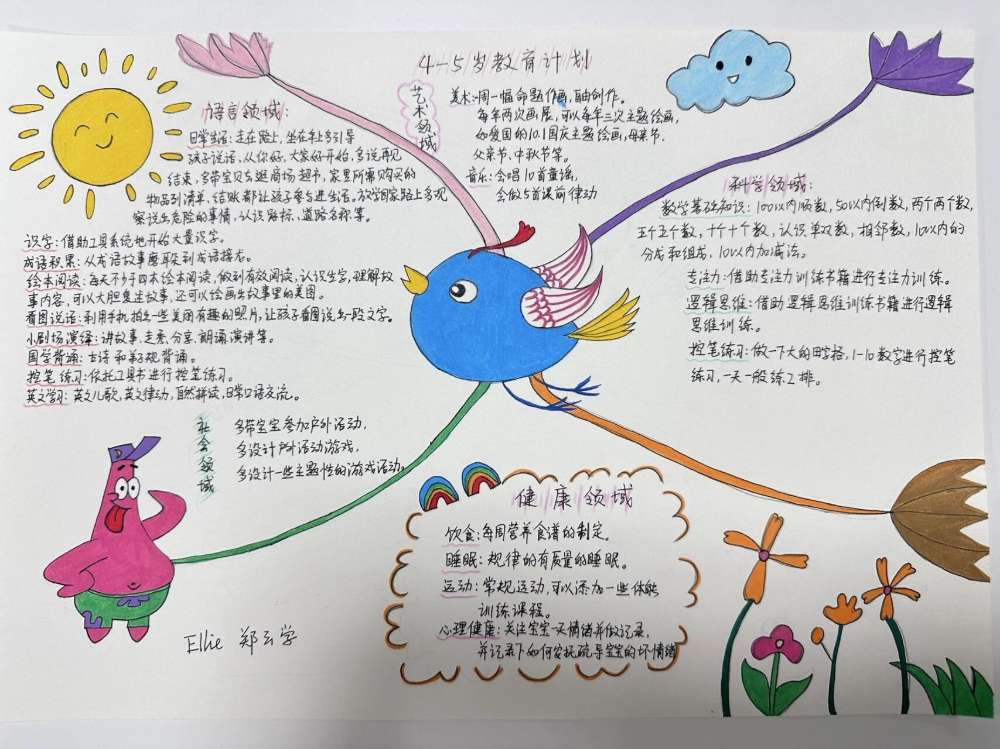 4-5岁教育计划
语言领域:
日常生活:走在路上,坐在车上多引导
孩子说话,从你好,大家好开始,多说再见
结束,多带宝贝去逛商场超书,家里所需购买的
物品列清单,结账都让孩子参与进生活,放学回家路上多观
察说出危险的事情,认识路标,道路名称等。
识字:借助工具系统地开始大量识字。
成语积累:从成语故事磨耳朵到成语接龙。
绘本阅读:每天不少于四本绘本阅读,做到有效阅读,认识生字,理解故
事内容,可以大胆复述故事,还可以绘画出故事里的美图。
看图说话:利用手机拍出一些美丽有趣的照片,让孩子看图说出一段文字。
小剧场演绎:讲故事,走秀,分享,朗诵,演讲等。
国学背诵:古诗和弟子规背诵。
控笔练习:依托工具书进行控笔练习。
英文学习:英文儿歌,英文律动,自然拼读,日常口语交流。
艺术领域
美术:周一幅命题作画,自由创作。
每年两次画展,可以每年三次主题绘画,
如爱国的10.1国庆主题绘画,母亲节,
父亲节,中秋节等。
音乐:会唱10首童谣,
会做5首课前律动
科学领域:
数学基础知识:100以内顺数,50以内倒数,两个两个数,
五个五个数,十个十个数,认识单双数,相邻数,10以内的
分成和组成,10以内加减法。
专注力:借助专注力训练书籍进行专注力训练。
逻辑思维:借助逻辑思维训练书籍进行逻辑
思维训练。
控笔练习:做一下大的田字格,1-10数字进行控笔
练习,一天一般练2排。
社会领域
多带宝宝参加户外活动,
多设计户外活动游戏,
多设计一些主题性的游戏活动。
健康领域
饮食:每周营养食谱的制定。
睡眠:规律的有质量的睡眠。
运动:常规运动,可以添加一些体能
训练课程。
心理健康:关注宝宝一天情绪并做记录,
并记录下如何安抚疏导宝宝的坏情绪
Ellie 郑云学